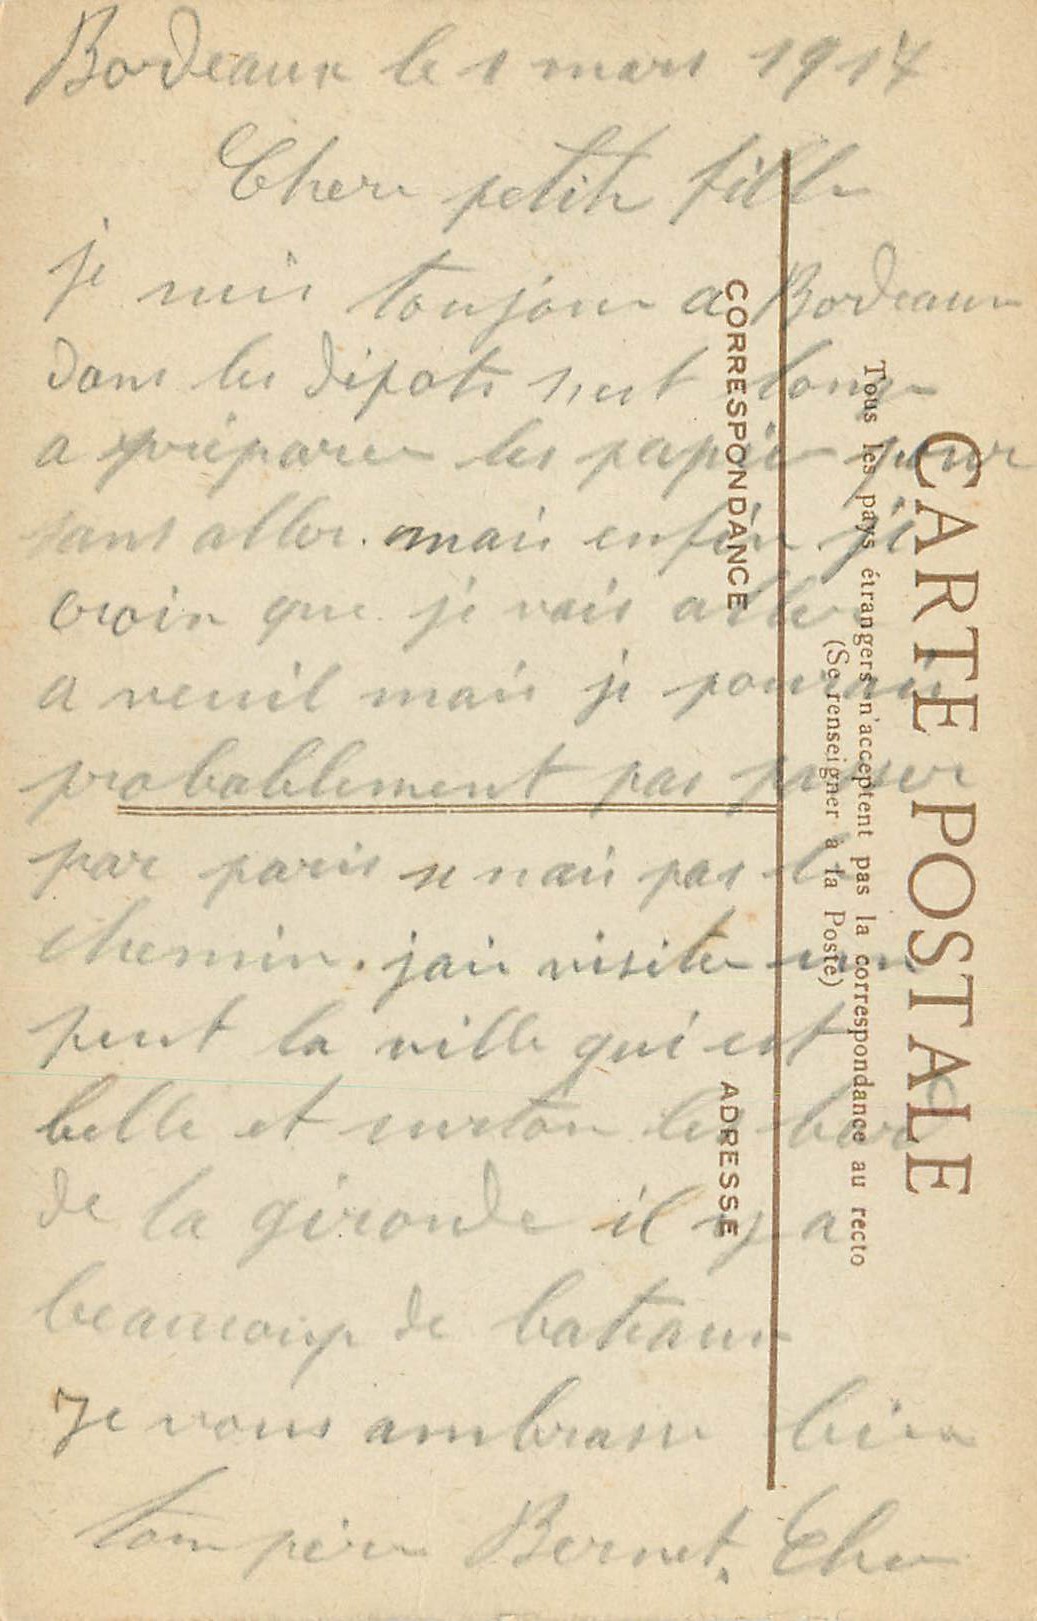 Bordeaux le 1 mars 1917
Chere petite fille
je suis toujour a Bordeaux
dans les dépots s'est long
a préparer les papier pour
sans aller. mais enfin je
croix que je vais aller
a mais je pourais
probablement pas passer
par paris se nais pas le
chemin. jais visiter un
peut la ville qui est
belle et surtou les bord
de la gironde il y a
beaucoup de bateaux
Je vous ambrasse bien
ton père Bernet.
CARTE POSTALE
Tous les pays étrangers n'acceptent pas la correspondance au recto
(Se renseigner à la Poste)
CORRESPONDANCE
ADRESSE